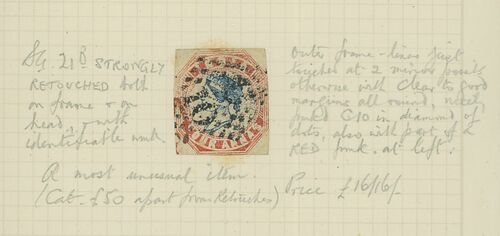 SG. 21B STRONGLY
RETOUCHED both
on frame & on
head, with
identifiable mark
A most unusual item.
(Cat. £50 apart from Retouches)
outer frame-lines just
touched at 2 minor points
otherwise with clear to good
margins all round, neat
pmkd C10 in diamond of
dots, also with part of a
RED pmk. at left.
Price £16/16/-